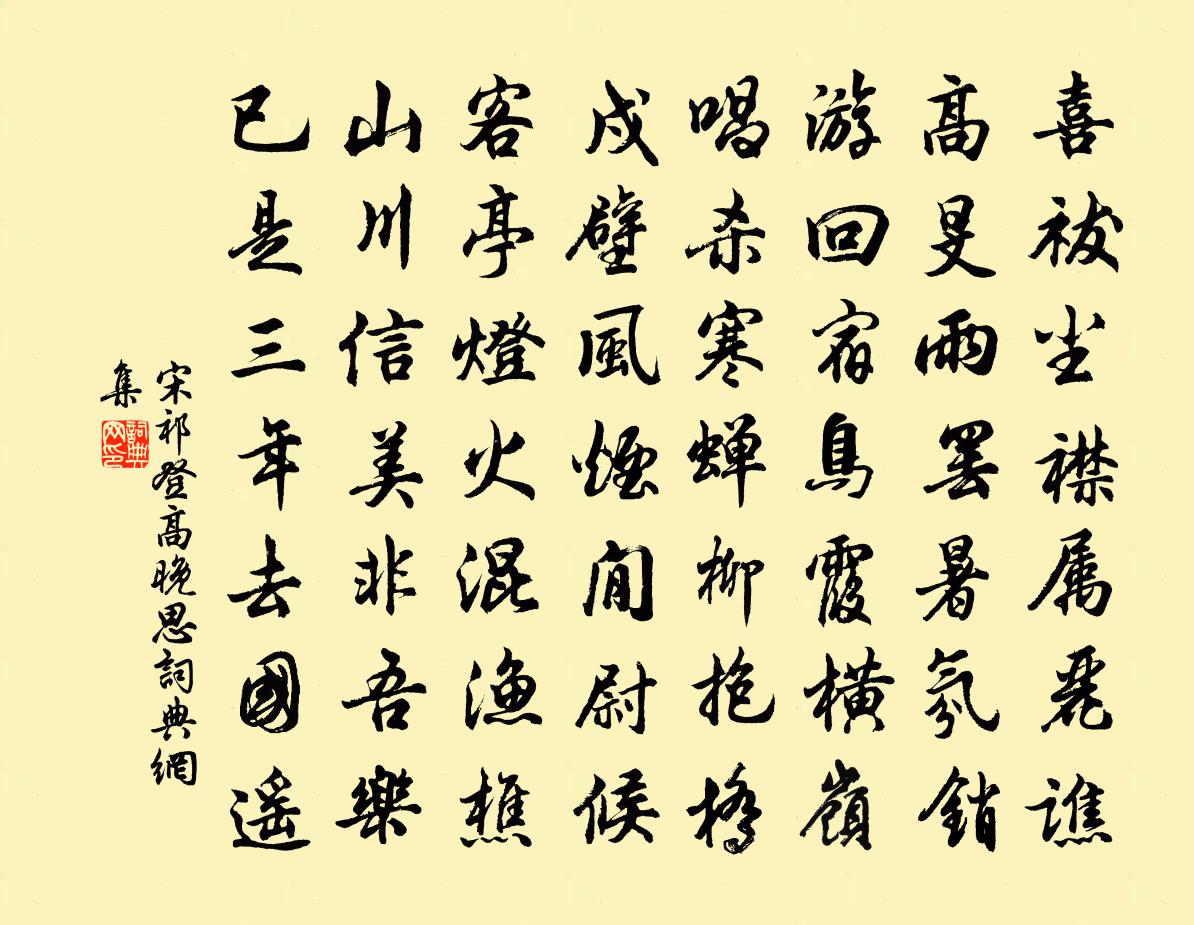 喜祓尘襟属丽谯
高旻雨罢暑氛銷
游回宿鳥霞横嶺
唱杀寒蝉柳抱橋
戍壁風煙閒尉候
客亭燈火混漁樵
山川信美非吾樂
已是三年去國遥
宋祁登高晚思詞典網
集
詞典网印